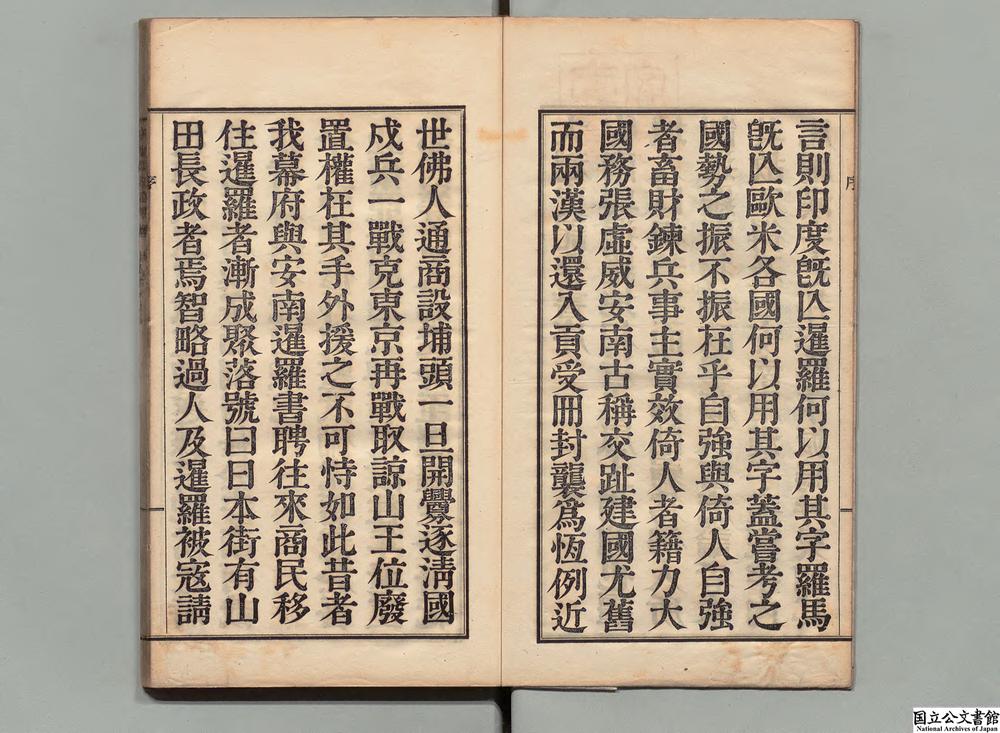 言則印度旣亾暹羅何以用其字羅馬
旣亾歐米各國何以用其字蓋嘗考之
國勢之振不振在乎自強與倚人自強
者畜財鍊兵事主實效倚人者籍力大
國務張虛威安南古稱交趾建國尤舊
而兩漢以還入貢受冊封襲爲恆例近
世佛人通商設埔頭一旦開釁逐淸國
戍兵一戰克東京再戰取諒山王位廢
置權在其手外援之不可恃如此昔者
我幕府與安南暹羅書聘往來商民移
住暹羅者漸成聚落號曰日本街有山
田長政者焉智略過人及暹羅被寇請
序
序
国立公文書館
National Archives of Japan